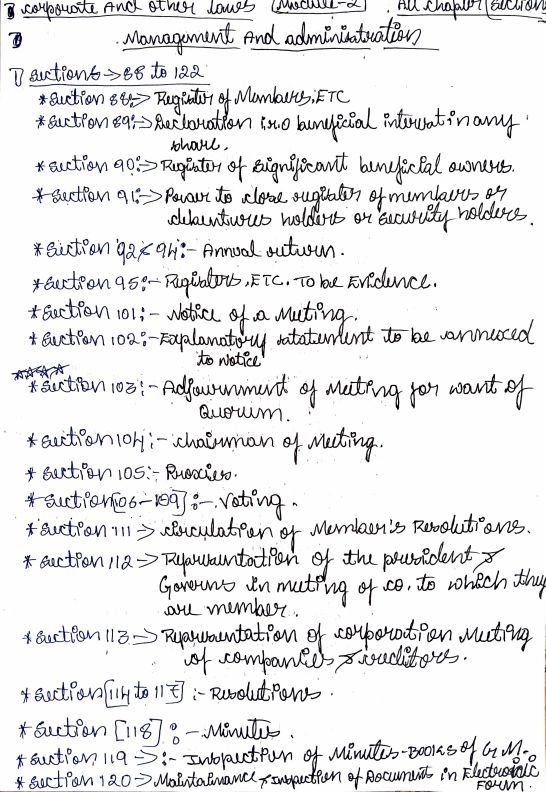 corporate And other laws (Module-2). All chapter (section
Management And administration
Sections → 88 to 122
* Section 88:-> Register of Members, ETC
* Section 89:-> Declaration i.r.o beneficial interest in any
share.
* Section 90:-> Register of significant beneficial owners.
* Section 91:-> Power to close register of members or
debentures holders or security holders.
* Section 92 & 94:- Annual return.
* Section 95:- Registers, ETC. To be Evidence.
* Section 101:- Notice of a Meeting.
* Section 102:- Explanatory statement to be annexed
to notice
* Section 103:- Adjournment of Meeting for want of
Quorum.
* Section 104:- chairman of Meeting.
* Section 105:- Proxies.
* Section [106-109]:- Voting.
* Section 111 -> circulation of Member's Resolutions.
* Section 112 -> Representation of the president &
Governs in meeting of co. to which they
are member.
* Section 113 -> Representation of corporation Meeting
of companies & creditors.
* Section [114 to 117] :- Resolutions.
* Section [118] :- Minutes.
* Section 119 -> :- Inspection of Minutes-Books of G.M.
* Section 120 -> Maintainance & Inspection of Document in Electronic
Forum.